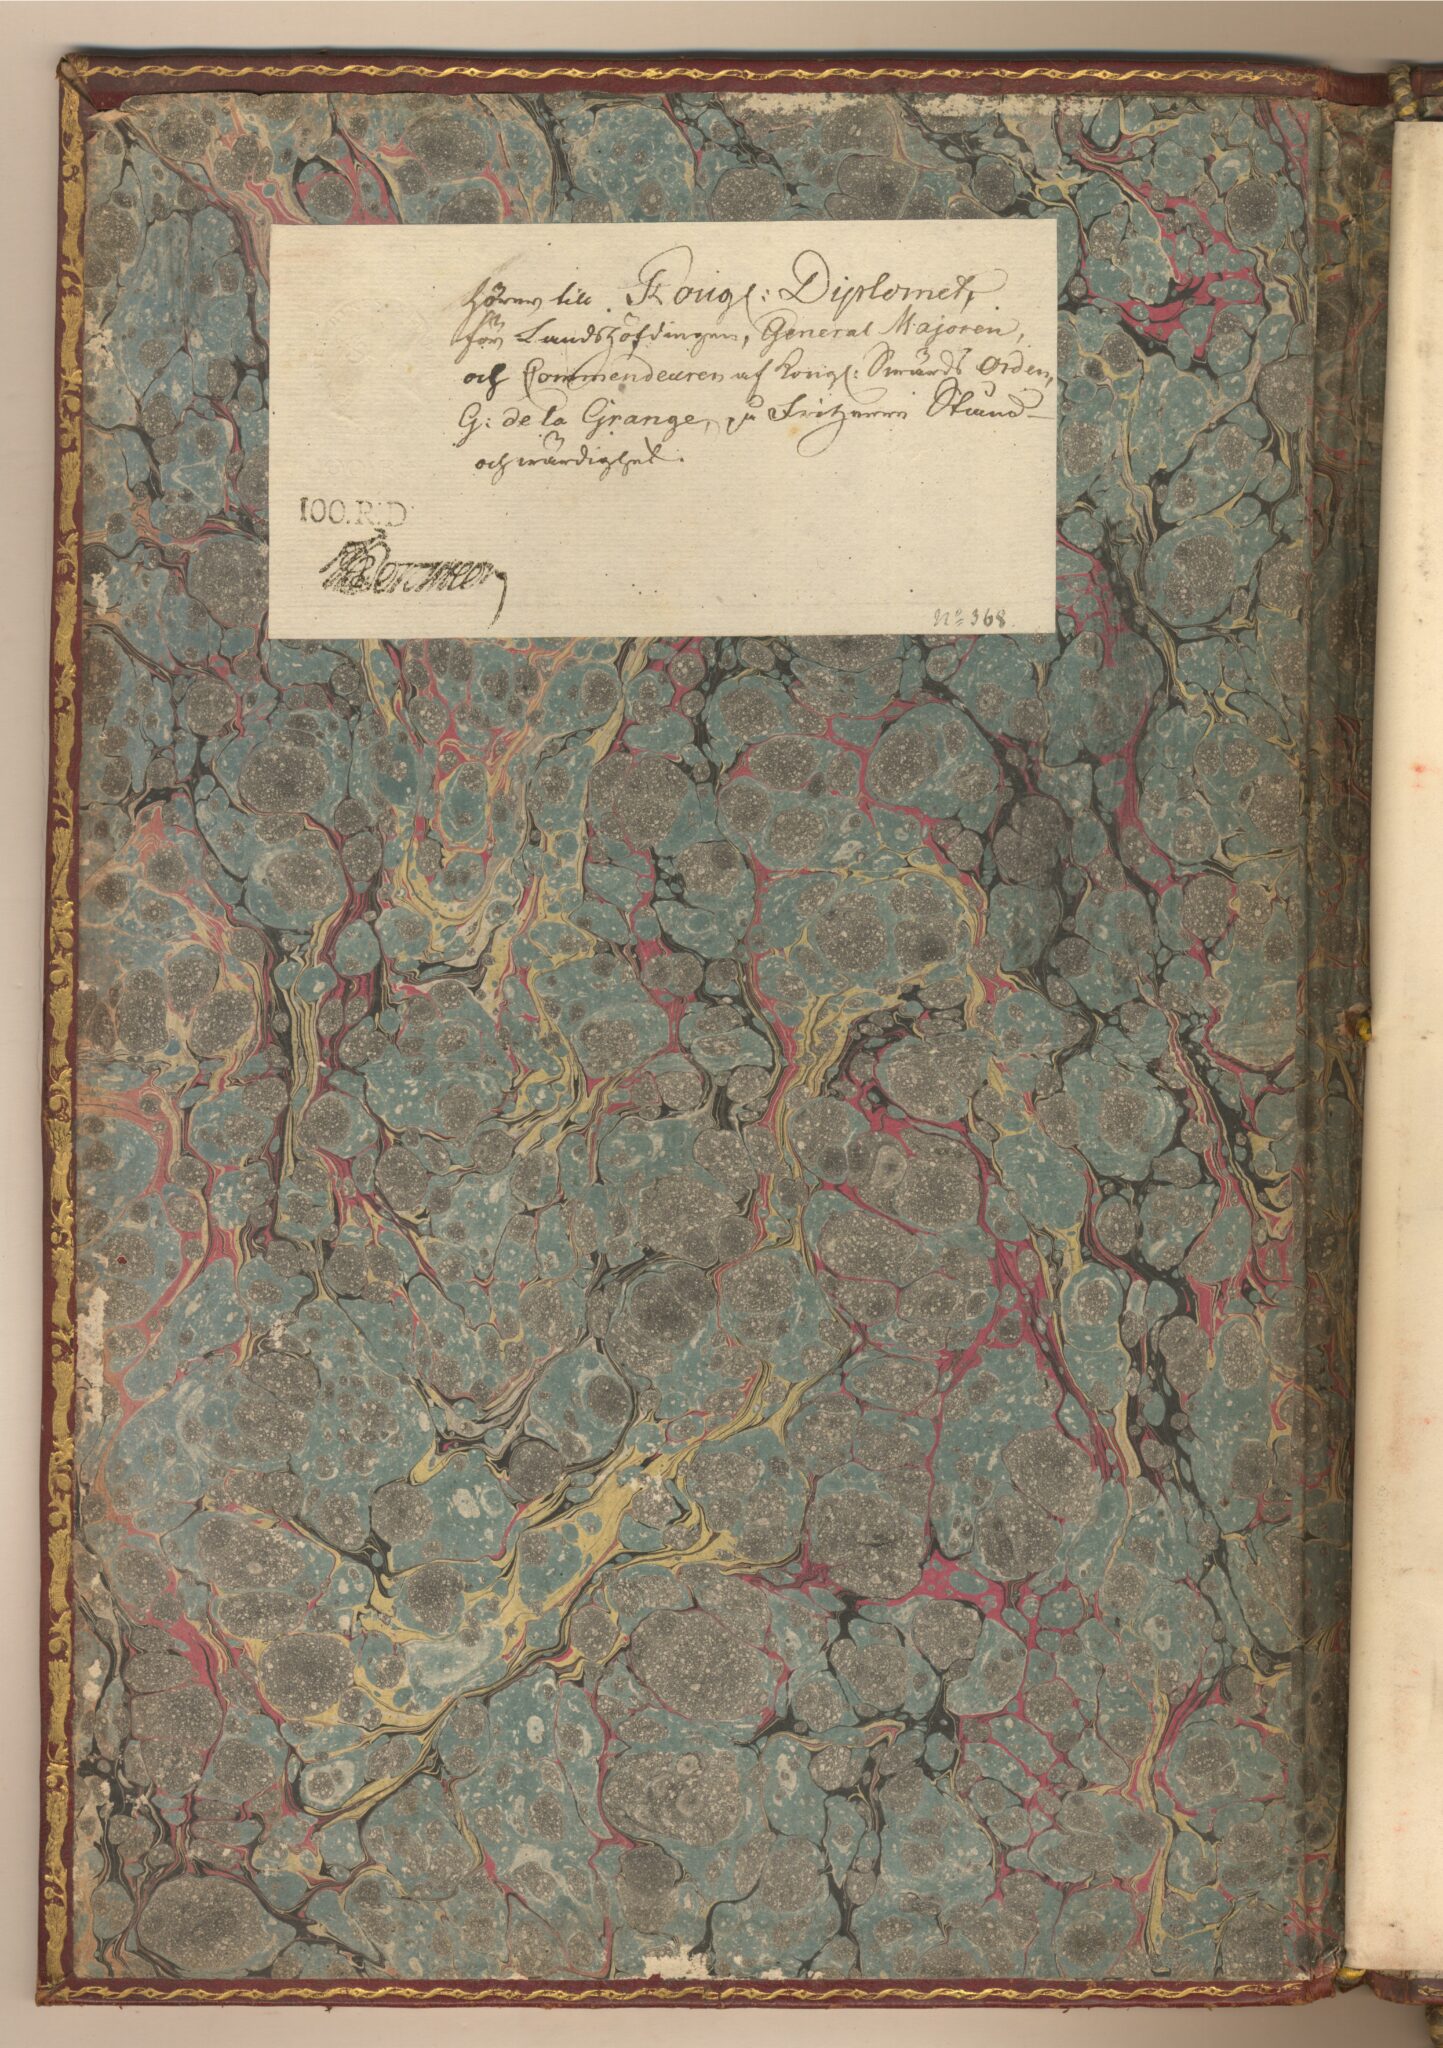 hörer till Kongl: Diplomet,
för Landshöfdingen, General Majoren,
och Commendeuren af Kongl: Swärds Orden,
G: de la Grange, på Friherrri Stånd
och wärdighet.
100.R:D
No 368.